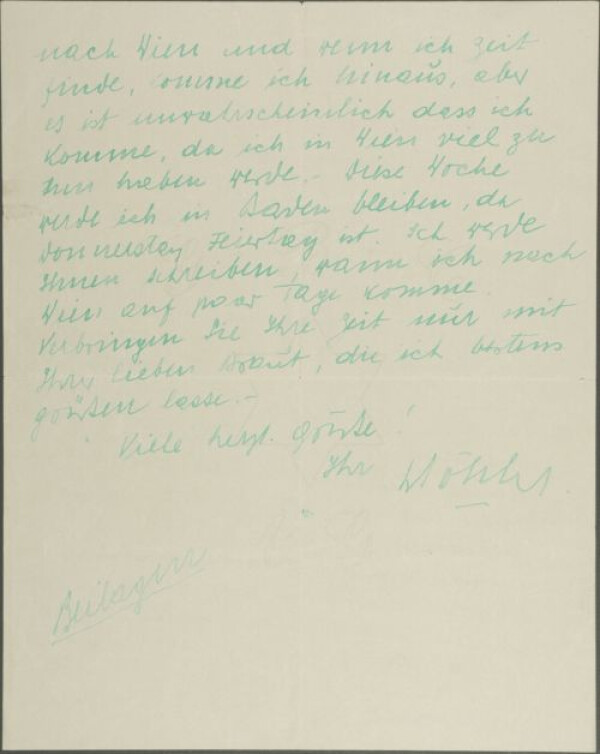 nach Wien und wenn ich Zeit
finde, komme ich hinaus, aber
es ist unwahrscheinlich dass ich
komme, da ich in Wien viel zu
tun haben werde. – Diese Woche
werde ich in Baden bleiben, da
Donnerstag Feiertag ist. Ich werde
Ihnen schreiben, wann ich nach
Wien auf paar Tage komme.
Verbringen Sie Ihre Zeit nur mit
Ihrer lieben Braut, die ich bestens
grüssen lasse. –
Viele herzl. Grüsse!
Ihr
Beilagen